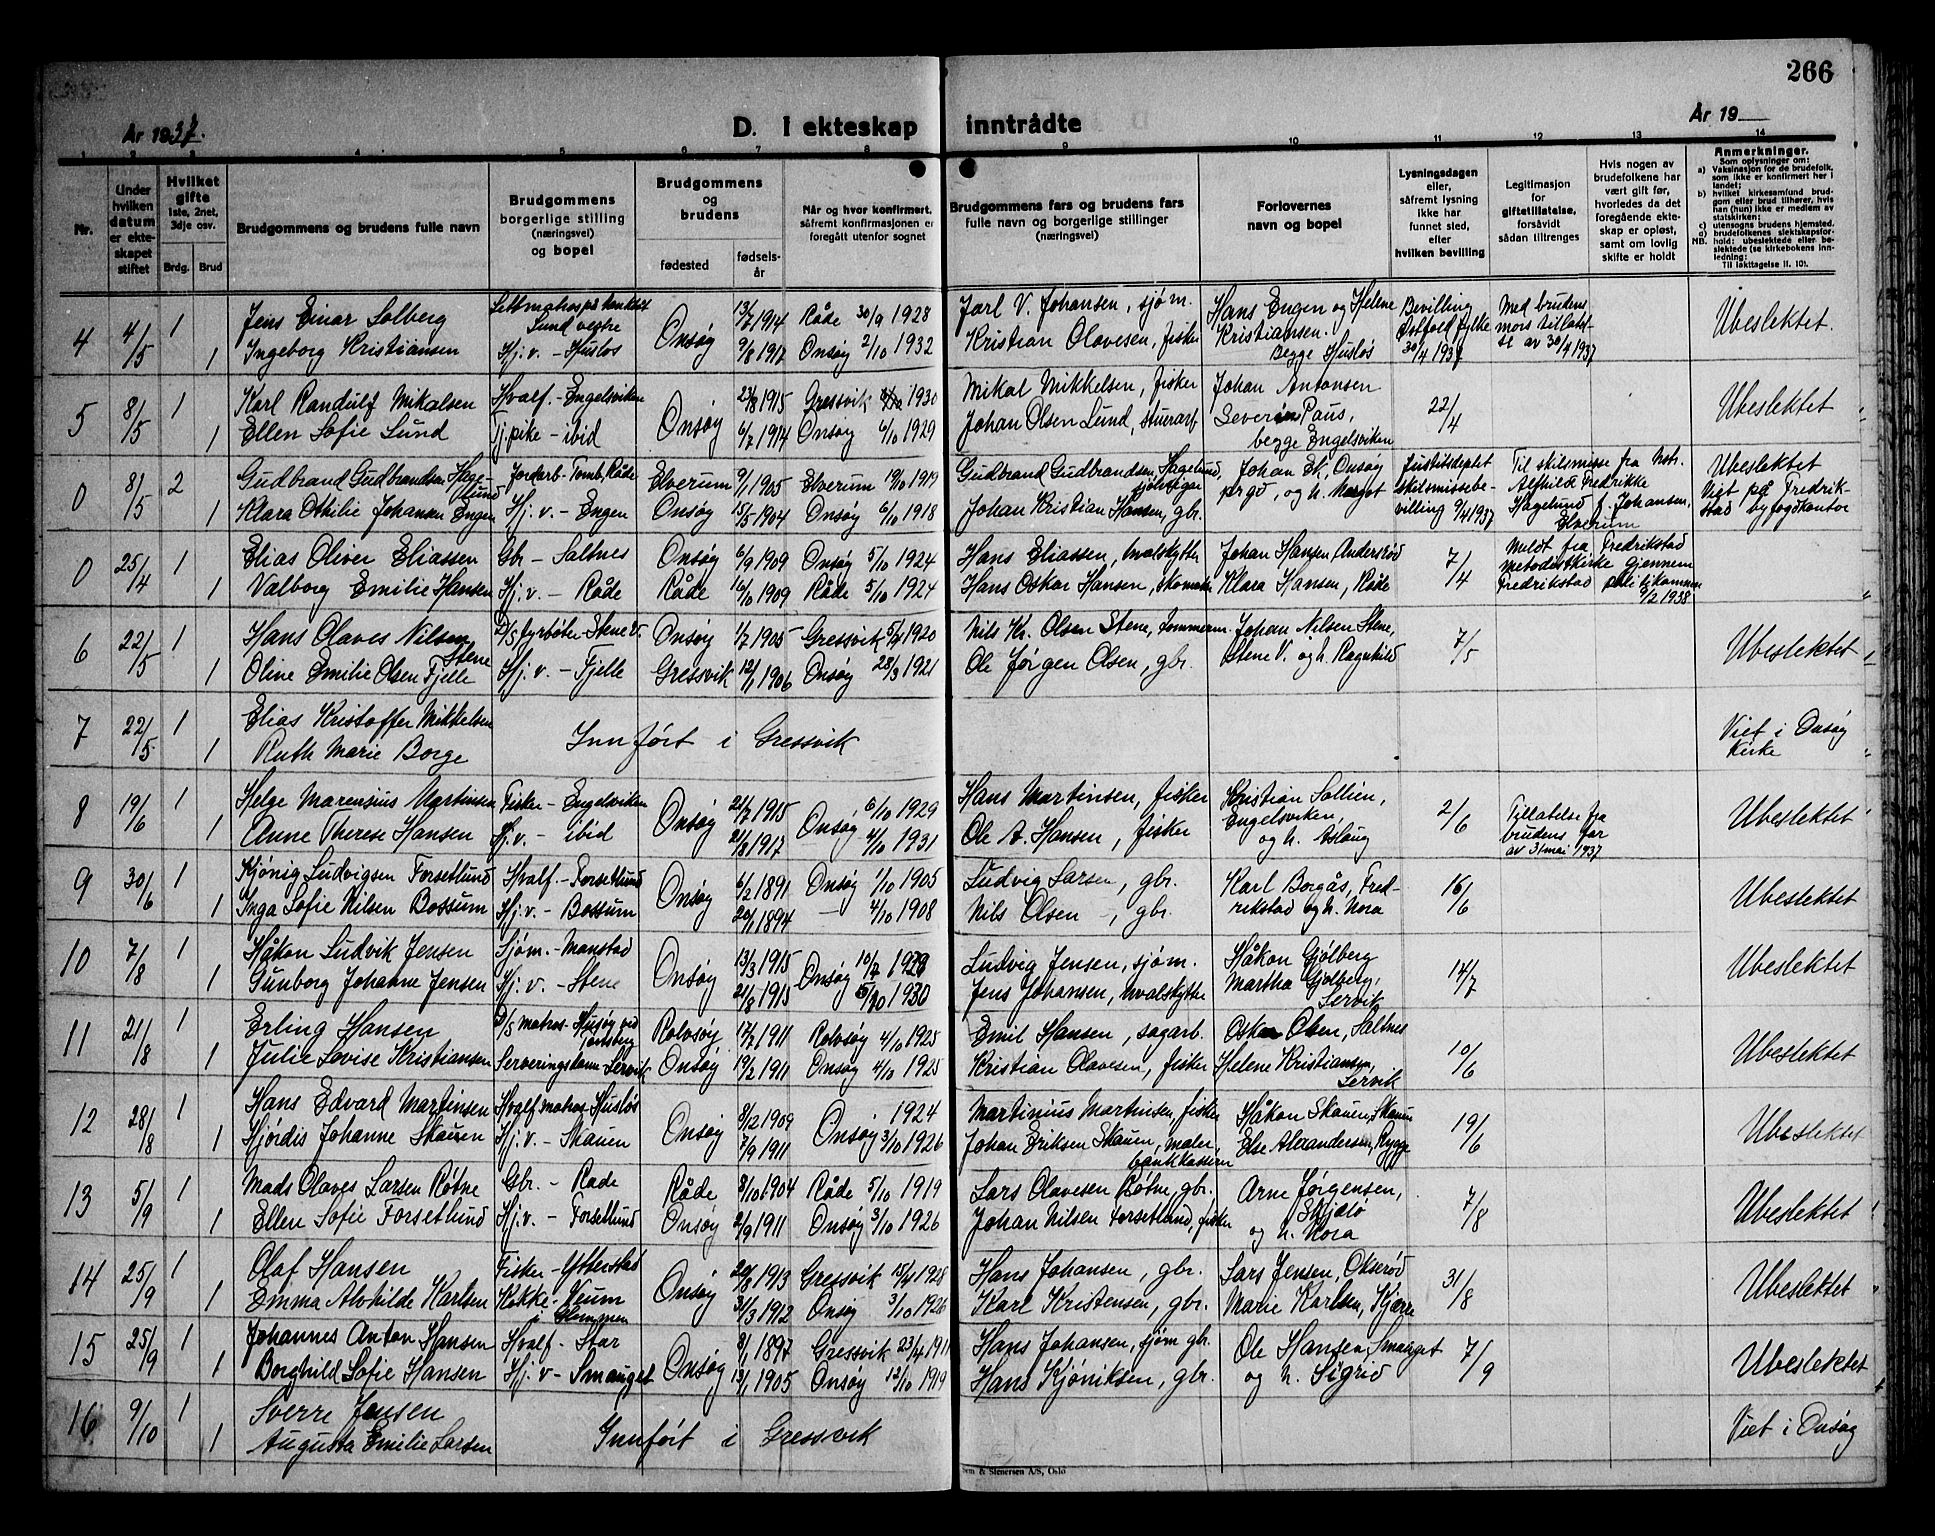 266
År 1937.
D. I ekteskap inntrådte
År 19
1 2 3 4 5 6 7 8 9 10 11 12 13 14
Nr.
Under hvilken datum er ekteskapet stiftet
Hvilket gifte
1ste, 2net, 3dje osv.
Brdg. Brud
Brudgommens og brudens fulle navn
Brudgommens borgerlige stilling (næringsvei) og bopel
Brudgommens og brudens
fødested
fødselsår
Når og hvor konfirmert, såfremt konfirmasjonen er foregått utenfor sognet
Brudgommens fars og brudens fars fulle navn og borgerlige stillinger (næringsvei)
Forlovernes navn og bopel
Lysningsdagen eller, såfremt lysning ikke har funnet sted, efter hvilken bevilling
Legitimasjon for giftetillatelse, forsåvidt sådan tiltrenges
Hvis nogen av brudefolkene har vært gift før, hvorledes da det foregående ekteskap er opløst, samt om lovlig skifte er holdt
Anmerkninger.
Som oplysninger om:
a) Vaksinasjon for de brudefolk, som ikke er konfirmert her i landet;
b) hvilket kirkesamfund brudgom eller brud tilhører, hvis han (hun) ikke er medlem av statskirken;
c) utensogns brudens hjemsted.
d) brudefolkenes slektskapsforhold: ubeslektede eller beslektede (se kirkebokens innledning:
NB. Til iakttagelse II. 10).
4 4/5 1 Jens Einar Solberg Lettmatros på tankskib Lund vestre Onsøy 13/7 1914 Råde 30/9 1928 Jarl V. Johansen, sjøm. Hans Engen og Helene Bevilling Østfold fylke 30/4 1937 Med brudens mors tillatelse av 30/4 1937 Ubeslektet.
1 Ingeborg Kristiansen Hj.v. - Husløs 9/8 1917 Onsøy 2/10 1932 Kristian Olavesen, fisker Kristiansen. Begge Husløs
5 8/5 1 Karl Randulf Mikalsen Hvalf. - Engelsviken Onsøy 23/8 1915 Gressvik 1930 Mikal Mikkelsen, fisker Johan Antonsen 22/4 Ubeslektet
1 Ellen Sofie Lund Tj.pike - ibid 6/7 1914 Onsøy 6/10 1929 Johan Olsen Lund, stuerarb. Severin Paus, begge Engelsviken
0 8/5 2 Gudbrand Gudbrandsen Hagelund Jordarb - Tomb, Råde Elverum 9/1 1905 Elverum 19/10 1919 Gudbrand Gudbrandsen Hagelund, Johan Ev. Onsøy Justitsdeptet skilsmissebevilling 9/4 1937 Til skilsmisse fra Alfhild Fredrikke Hagelund f. Johansen, Elverum Ubeslektet Viet på Fredrikstad byfogdkontor
1 Klara Othilie Johansen Engen Hj.v. - Engen Onsøy 15/5 1904 Onsøy 6/10 1918 Johan Kristian Hansen, gbr. prgd, og h. Margot
0 25/4 1 Elias Oliver Eliassen Gbr - Saltnes Onsøy 6/9 1909 Onsøy 5/10 1924 Hans Eliassen, hvalskytter Johan Hansen Anderød 7/4 Meldt fra Fredrikstad Metodistkirke gjennem Fredrikstad politikammer 9/2 1938
1 Valborg Emilie Hansen Hj.v. - Råde Råde 16/10 1909 Råde 5/10 1924 Hans Oskar Hansen, skomaker Klara Hansen, Råde
6 22/5 1 Hans Olaves Nilsen Stene D/S fyrbøter Stene V. Onsøy 1/7 1905 Gressvik 5/4 1920 Nils Kr. Olsen Stene, tømmerm. Johan Nilsen Stene, 7/5 Ubeslektet
1 Oline Emilie Olsen Fjelle Hj.v. - Fjelle Gressvik 12/1 1906 Onsøy 28/3 1921 Ole Jørgen Olsen, gbr. Stene V. og h. Ragnhild
7 22/5 1 Elias Kristoffer Mikkelsen Innført i Gressvik Viet i Onsøy Kirke
1 Ruth Marie Borge
8 19/6 1 Helge Marensius Martinsen Fisker - Engelsviken Onsøy 21/7 1915 Onsøy 6/10 1929 Hans Martinsen, fisker Kristian Sollien, 2/6 Tillatelse fra brudens far av 31 mai 1937 Ubeslektet
1 Anne Therese Hansen Hj.v. - ibid 21/8 1917 4/10 1931 Ole A. Hansen, fisker Engelsviken, og h. Aslaug
9 30/6 1 Kjønig Ludvigsen Forsetlund Hvalf. - Forsetlund Onsøy 6/2 1891 Onsøy 1/10 1905 Ludvig Larsen, gbr. Karl Borgås, Fredrikstad og h. Nora 16/6 Ubeslektet
1 Inga Sofie Nilsen Bossum Hj.v. - Bossum 20/1 1894 — 4/10 1908 Nils Olsen -, gbr.
10 7/8 1 Håkon Ludvik Jensen Sjøm. - Manstad Onsøy 13/3 1915 Onsøy 1929 Ludvig Jensen, sjøm. Håkon Gjølberg 14/7 Ubeslektet
1 Gunborg Johanne Jensen Hj.v. - Stene 21/8 1915 5/10 1930 Jens Johansen, hvalskytter Martha Gjølberg, Lervik
11 21/8 1 Erling Hansen D/S matros - Husøy ved Tønsberg Rolvsøy 17/7 1911 Rolvsøy 4/10 1925 Emil Hansen, sagarb. Oskar Olsen, Saltnes 10/6 Ubeslektet
1 Julie Lovise Kristiansen Serveringsdame Lervik Onsøy 19/2 1911 Onsøy 4/10 1925 Kristian Olavesen, fisker Helene Kristiansen, Lervik
12 28/8 1 Hans Edvard Martinsen Hvalf matros Husløs Onsøy 8/2 1909 Onsøy 1924 Martinius Martinsen, fisker Håkon Skauen, Skauen 19/6 Ubeslektet
1 Hjørdis Johanne Skauen Hj.v. - Skauen 7/9 1911 3/10 1926 Johan Eriksen Skauen, maler bankkasserer Else Alexandersen, Rygge
13 5/9 1 Mads Olaves Larsen Røtne Gbr. - Råde Råde 8/10 1904 Råde 5/10 1919 Lars Olavesen Røtne, gbr. Arne Jørgensen, 7/8 Ubeslektet
1 Ellen Sofie Forsetlund Hj.v. - Forsetlund Onsøy 2/9 1911 Onsøy 3/10 1926 Johan Nilsen Forsetlund, fisker Skjælø og h. Nora
14 25/9 1 Olaf Hansen Fisker - Ytterstad Onsøy 29/8 1913 Gressvik 15/4 1928 Hans Johansen, gbr. Lars Jensen, Okserød 31/8 Ubeslektet
1 Emma Alvhilde Karlsen Kokke - Veum i Glemmen 31/3 1912 Onsøy 3/10 1926 Karl Kristensen, gbr. Marie Karlsen, Kjærre
15 25/9 1 Johannes Anton Hansen Hvalf - Slar Onsøy 8/1 1897 Gressvik 23/4 1911 Hans Johansen, sjøm gbr. Ole Hansen, Smauget 7/9 Ubeslektet
1 Borghild Sofie Hansen Hj.v - Smauget 13/1 1905 Onsøy 12/10 1919 Hans Kjøniksen, gbr. og h. Sigrid
16 9/10 1 Sverre Jensen Innført i Gressvik Viet i Onsøy
1 Augusta Emilie Larsen
Sem & Stenersen A/S, Oslo